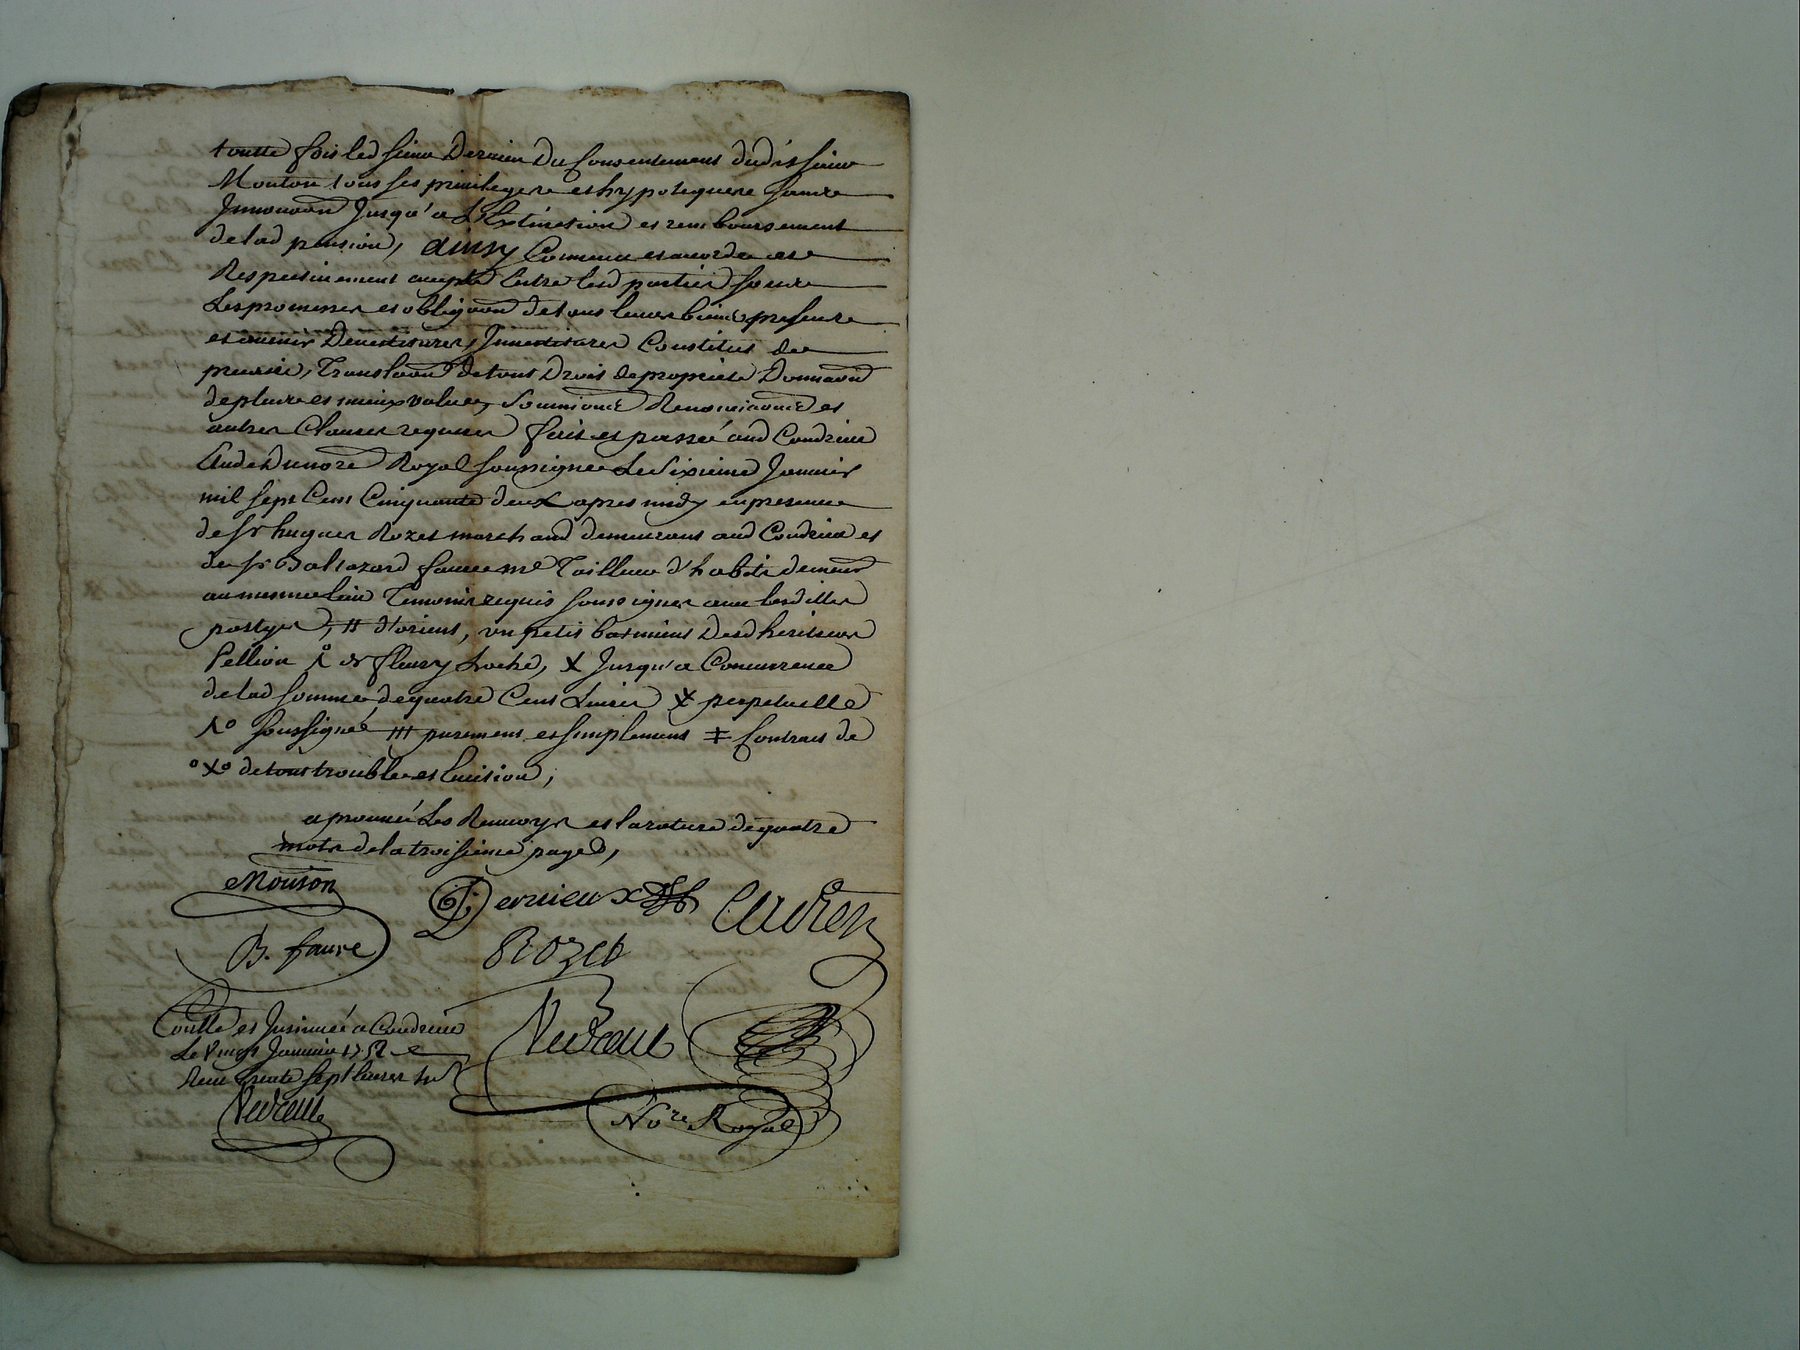 toutte fois led sieur Dervieu Du Consentement dudit sieur
Mouton tous ses privilegere et hypotequere sance
Innovaon Jusqu'a L'Extinction et remboursement
de lad pension, ainsy Convenu et accordé et
Respectivement accepté Entre lesd parties souce
Les promesses et obligaon de tous leurs biens presents
et avenir Devestitures, Investitures Constitut de
precaire, Translaon de tous Droit de propriete Donnaon
de plus et mieux value, Soumions Renonciaons et
autres Clauses requises fait et passé aud Condrieu
Etude du nore Royal soussigné Le sixieme Janvier
mil sept Cent Cinquante deux apres midy en presence
de sr hugues Rozet marchand demeurant aud Condrieu et
de sr Baltazard faure me Tailleur d'habits demeurt
au mesme lieu Temoins requis soussignes avec lesdittes
partyes, # d'orient, un petit batiment desd heritiers
Pellion de fleury Roche, x Jusqu'a Concurrence
de lad somme de quatre Cent Livres x perpetuelle
1o soussigné ## purement et simplement ‡ Contract de
oxo de tous troubles et Eviction;
aprouvé Les Renvoys et la rature de quatre
mots de la troisieme page,
Mouton
Dervieux
B. faure
Rozet
Conllé et Insinué a Condrieu
Le Vingt Janvier 1752
Receu trente sept livres
Nore Royal